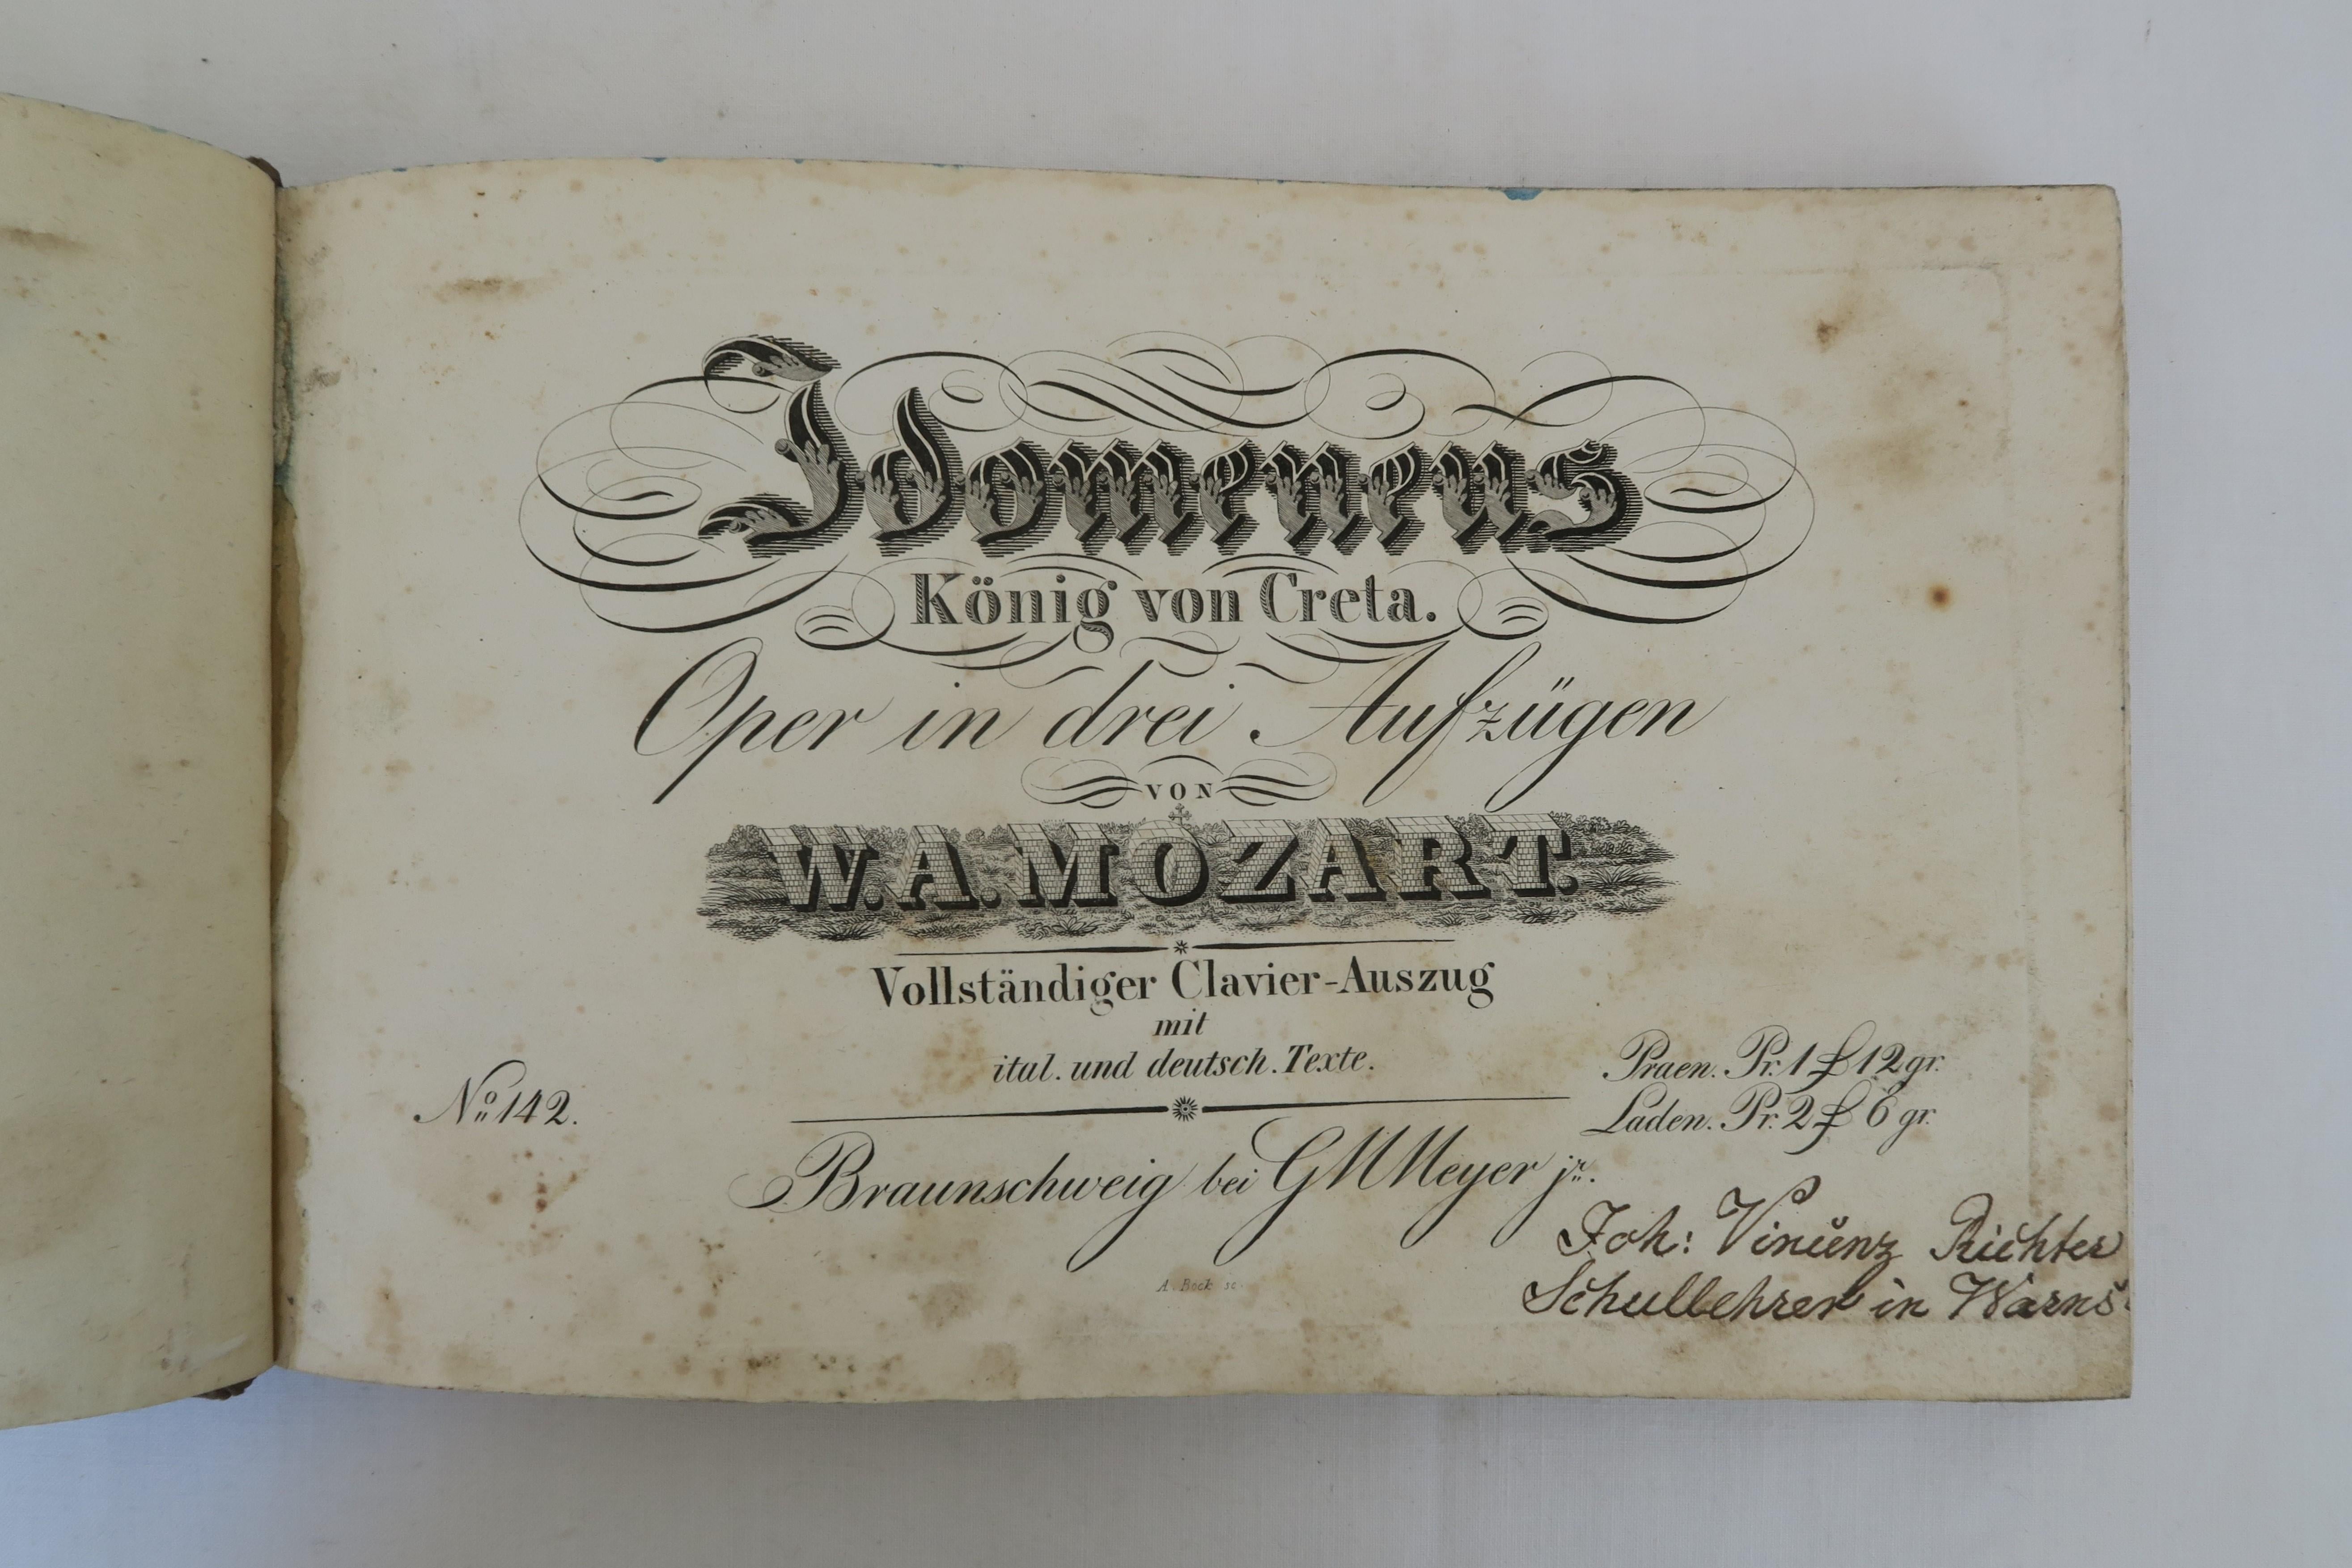 Idomeneus
König von Creta.
Oper in drei Aufzügen
VON
W. A. MOZART.
Vollständiger Clavier-Auszug
mit
ital. und deutsch. Texte.
Praen. Pr. 1 ₰ 12 gr.
Laden. Pr. 2 ₰ 6 gr.
No 142.
Braunschweig bei G M Meyer jr.
A. Beck sc.
Joh: Vinzenz Richter
Schullehrer in Warns